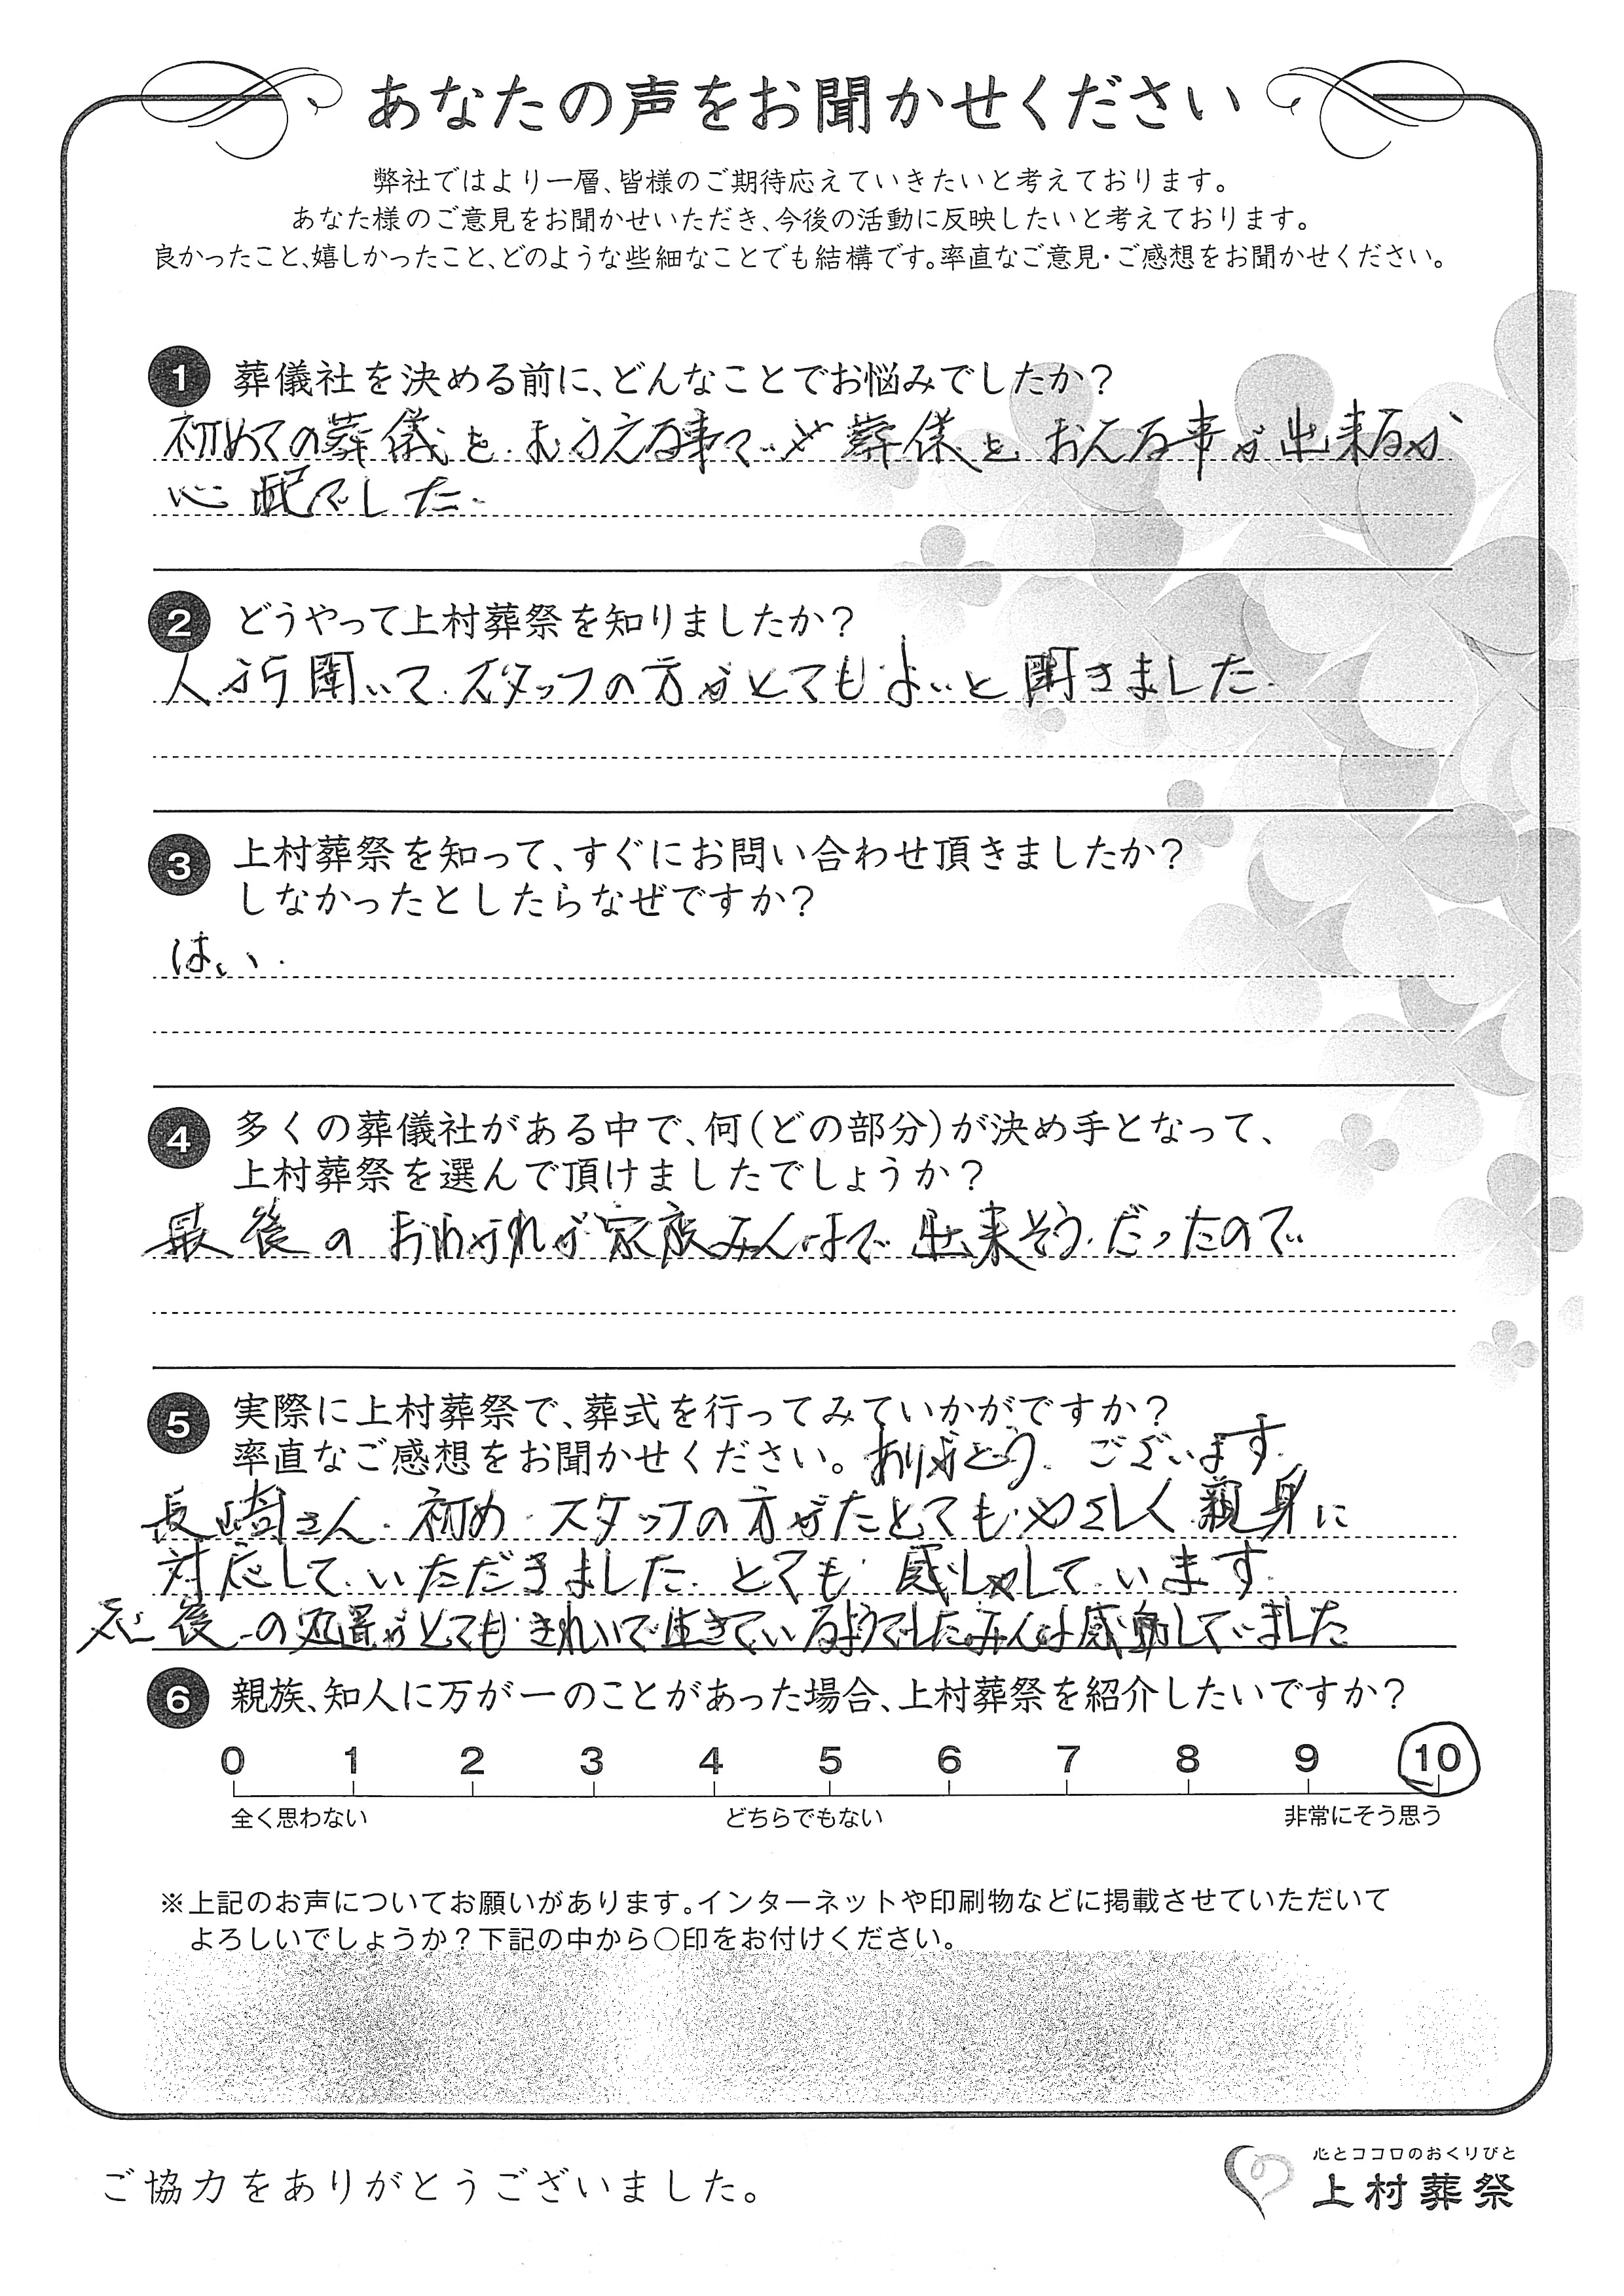 あなたの声をお聞かせください
弊社ではより一層、皆様のご期待応えていきたいと考えております。
あなた様のご意見をお聞かせいただき、今後の活動に反映したいと考えております。
良かったこと、嬉しかったこと、どのような些細なことでも結構です。率直なご意見・ご感想をお聞かせください。
1 葬儀社を決める前に、どんなことでお悩みでしたか?
初めての葬儀を むかえる事で 葬儀を おえる事が出来るか
心配でした.
2 どうやって上村葬祭を知りましたか?
人から聞いて.スタッフの方がとてもよいと聞きました.
3 上村葬祭を知って、すぐにお問い合わせ頂きましたか?
しなかったとしたらなぜですか?
はい.
4 多くの葬儀社がある中で、何(どの部分)が決め手となって、
上村葬祭を選んで頂けましたでしょうか?
最後の おわかれが家族みんなで 出来そう.だったので
5 実際に上村葬祭で、葬式を行ってみていかがですか?
率直なご感想をお聞かせください。ありがとう. ございます.
長崎さん.初め.スタッフの方がたとてもやさしく親身に
対応して.いただきました.とても 感しゃしています.
後の処置がとてもきれいで生きているようでしたみんな感動していました
6 親族、知人に万が一のことがあった場合、上村葬祭を紹介したいですか?
0 1 2 3 4 5 6 7 8 9 10
全く思わない どちらでもない 非常にそう思う
※上記のお声についてお願いがあります。インターネットや印刷物などに掲載させていただいて
よろしいでしょうか?下記の中から○印をお付けください。
ご協力をありがとうございました。
心とココロのおくりびと
上村葬祭